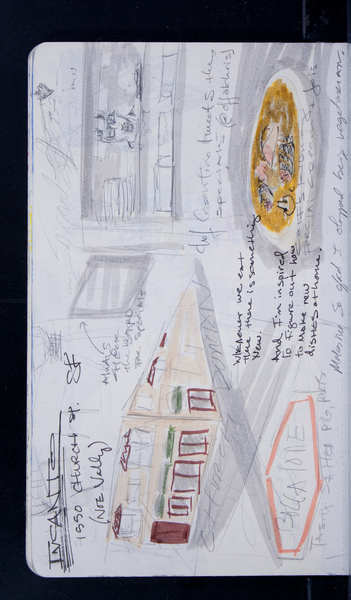 INCANTO
1550 CHURCH ST. SF
(NOE Valley)
ALWAYS
CHECK
THE BOARD
FOR SPECIALS
Chef Cosentino tweets the
specials @offalchris
Whenever we eat
there there is something
New.
And I'm inspired
to figure out how
to make new
dishes at home.
BOCCALONE
TASTY SALTED PIG PARTS
Makes me so glad I stopped being vegetarian.